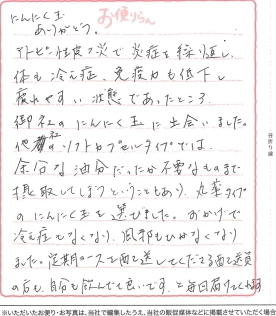 にんにく玉
ありがとう。
お便りらん
アトピー性皮フ炎で炎症を繰り返し、
体も冷え症、免疫力も低下し
疲れやすい状態であったところ
御社のにんにく玉に出会いました。
他社のソフトカプセルタイプでは、
余分な油分だったか不要なものまで
摂取してしまうということもあり、丸薬タイプ
のにんにく玉を選びました。おかげで
冷え症でなくなり、風邪もひかなくなり
ました。定期コースで
の方も、自分も飲んでて良いです。と毎日届けてくれます
※いただいたお便り・お写真は、当社で編集したうえ、当社の販促媒体などに掲載させていただく場合